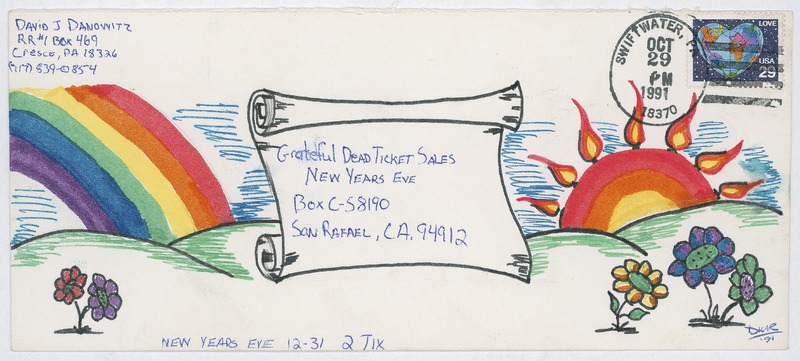 David J Danowitz
RR#1 Box 469
Cresco, PA 18326
(717) 839-0854
SWIFTWATER, P
OCT
29
PM
1991
18370
LOVE
USA
29
Grateful Dead Ticket Sales
New Years Eve
Box C-S8190
San Rafael, CA. 94912
New Years Eve 12-31 2 Tix
'91